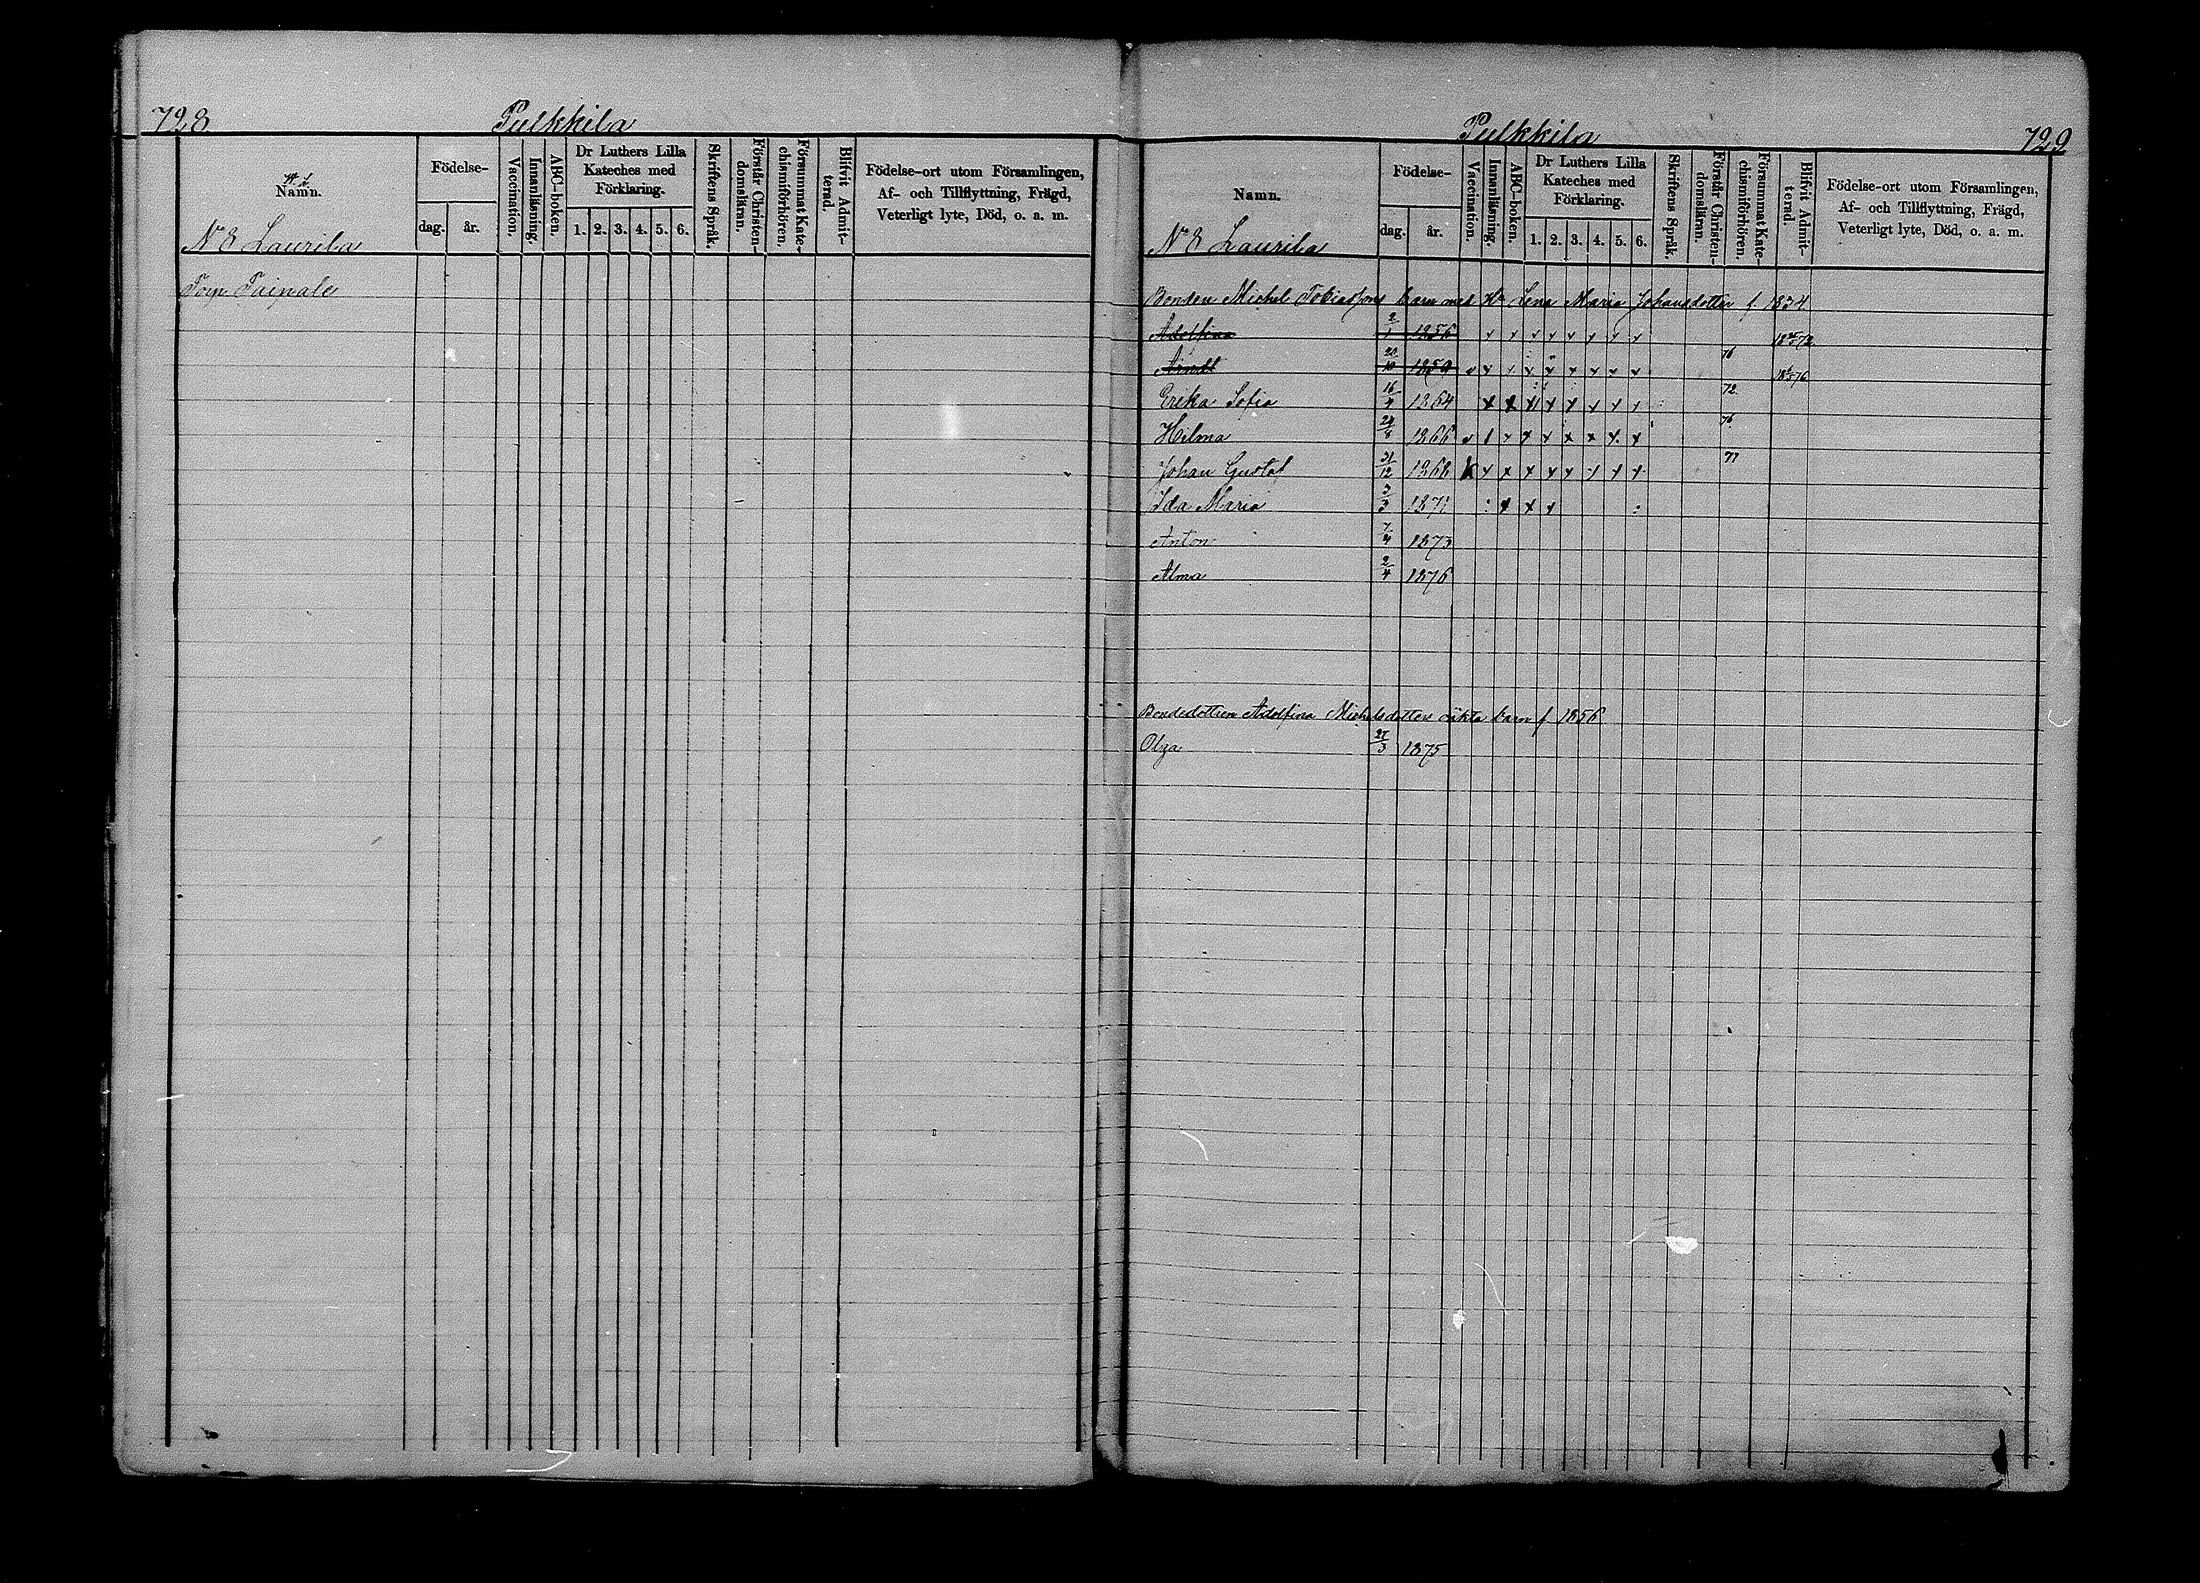 728
Pulkkila
Namn.
Födelse-
dag. år.
Vaccination.
Innanläsning.
ABC-boken.
Dr Luthers Lilla
Kateches med
Förklaring.
1. 2. 3. 4. 5. 6.
Skriftens Språk.
Förstår Christen-
domsläran.
Försummat Kate-
chismiförhören.
Blifvit Admit-
terad.
Födelse-ort utom Församlingen,
Af- och Tillflyttning, Frägd,
Veterligt lyte, Död, o. a. m.
N 8 Laurila
Torp Taipale
Pulkkila
729
Namn.
Födelse-
dag. år.
Vaccination.
Innanläsning.
ABC-boken.
Dr Luthers Lilla
Kateches med
Förklaring.
1. 2. 3. 4. 5. 6.
Skriftens Språk.
Förstår Christen-
domsläran.
Försummat Kate-
chismiförhören.
Blifvit Admit-
terad.
Födelse-ort utom Församlingen,
Af- och Tillflyttning, Frägd,
Veterligt lyte, Död, o. a. m.
N 8 Laurila
Bonden Michel Tobiassons barn med Hu Lena Maria Johansdotter f. 1834.
Adolfina 2/1 1856
20/10 1859 76
Erika Sofia 16/4 1864 72
Hilma 24/8 1866 76
Johan Gustaf 31/12 1868 77
Ida Maria 3/3 1871
Anton 7/4 1873
Alma 2/4 1876
Bondedottren Adolfina Michelsdotters oäkta barn f 1856
Olga 27/3 1875